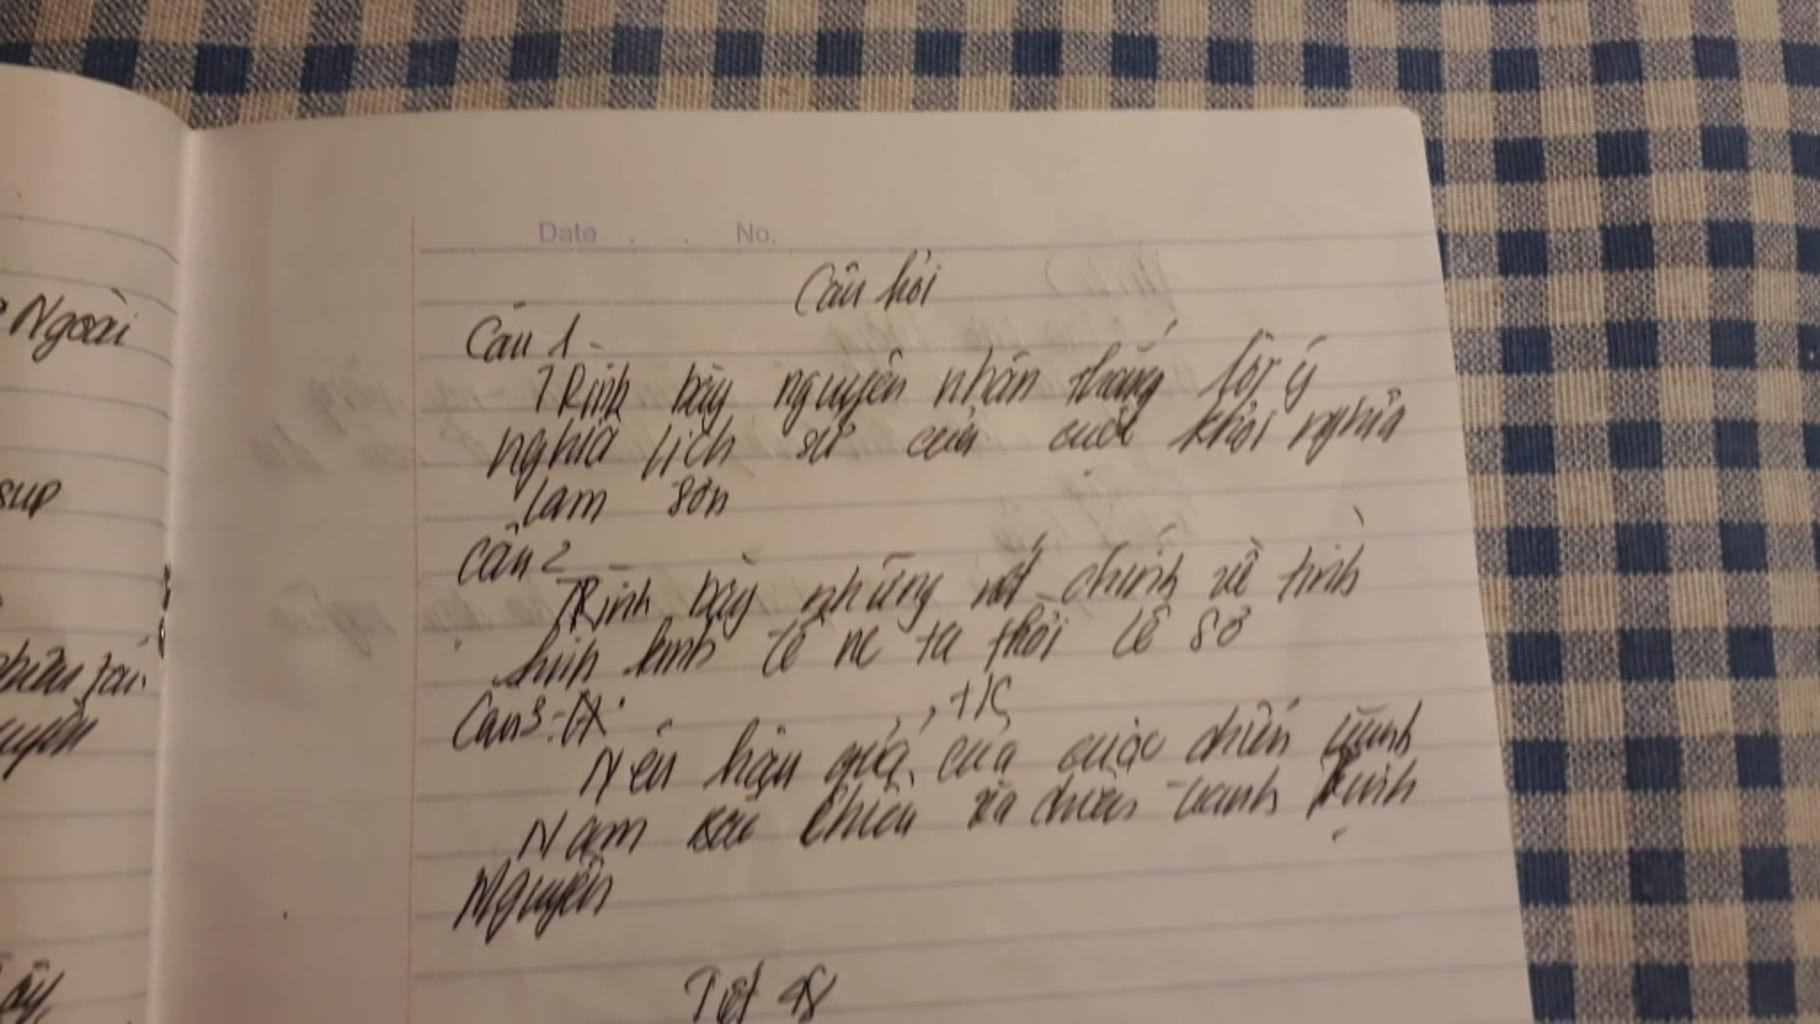 Ngoài
sup
Date . . No.
Câu hỏi
Câu 1-
TRình bày nguyên nhân thắng lợi ý
nghĩa lịch sử của cuộc khởi nghĩa
Lam Sơn
Câu 2
TRình bày những nét chính về tình
hình kinh tế nc ta thời Lê sơ
Câu 3:
Nêu hậu quả, của cuộc chiến tranh
Nam Bắc triều và chiến tranh Trịnh
Nguyễn
Tiết